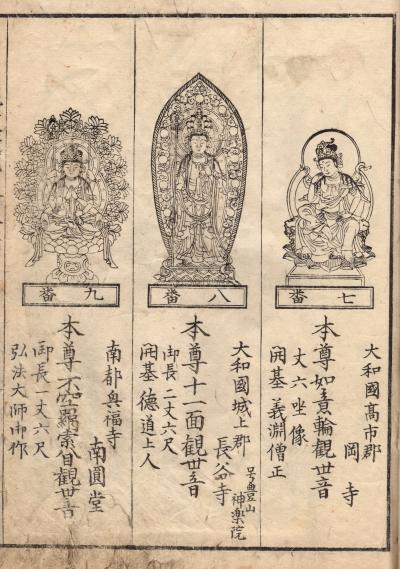 七番
大和國高市郡
岡寺
本尊如意輪觀世音
丈六坐像
開基義淵僧正
八番
大和國城上郡
長谷寺
号豊山
神楽院
本尊十一面觀世音
御長二丈六尺
開基德道上人
九番
南都興福寺
南圓堂
本尊不空羂索自觀世音
御長一丈六尺
弘法大師御作